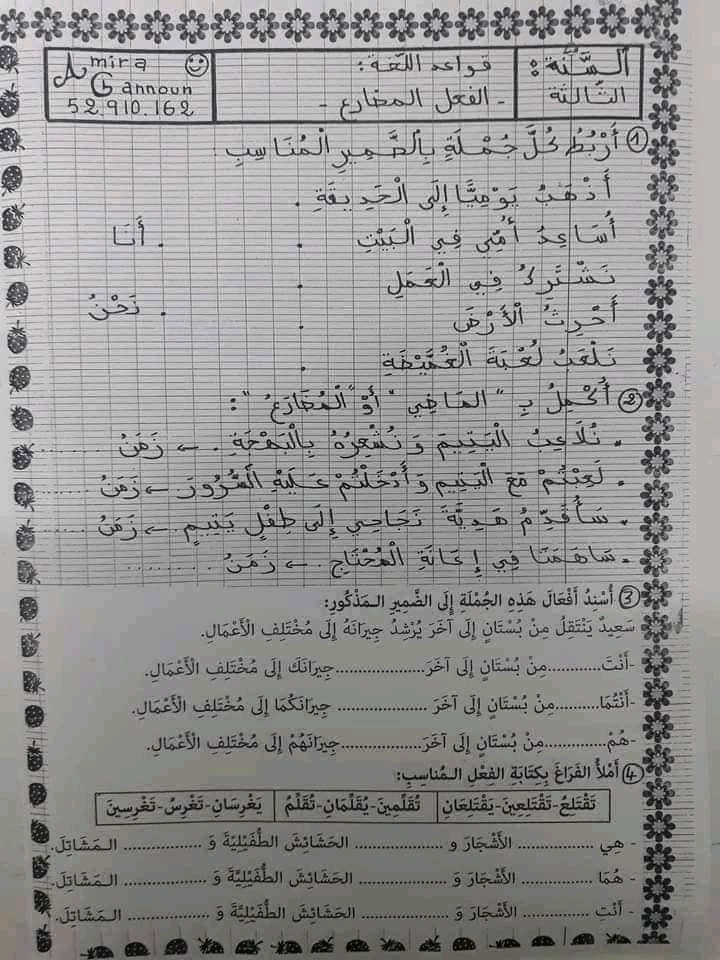 السَّنَة : الثّالثة
قواعد اللّغة :
- الفعل المضارع -
Amira
Gannoun
52.910.162
① أَرْبُطُ كُلَّ جُمْلَةٍ بِالضَّمِيرِ الْمُنَاسِبِ :
أَذْهَبُ يَوْمِيًّا إِلَى الْحَدِيقَةِ .
أُسَاعِدُ أُمِّي فِي الْبَيْتِ . . أَنَا
نَشْتَرِكُ فِي الْعَمَلِ .
أَحْرِثُ الْأَرْضَ . . نَحْنُ
نَلْعَبُ لُعْبَةَ الْغُمَّيْضَةِ .
② أُكْمِلُ بِـ "المَاضِي" أَوْ "الْمُضَارَعُ" :
. نُلَاعِبُ الْيَتِيمَ وَ نُشْعِرُهُ بِالْبَهْجَةِ . ← زَمَنُ ..........
. لَعِبْتُمْ مَعَ الْيَتِيمِ وَ أَدْخَلْتُمْ عَلَيْهِ السُّرُورَ ← زَمَنُ ..........
. سَأُقَدِّمُ هَدِيَّةَ نَجَاحِي إِلَى طِفْلٍ يَتِيمٍ ← زَمَنُ ..........
. سَاهَمَنَا فِي إِعَانَةِ الْمُحْتَاجِ . ← زَمَنُ ..........
③ أُسْنِدُ أَفْعَالَ هَذِهِ الجُمْلَةِ إِلَى الضَّمِيرِ الـمَذْكُورِ:
سَعِيدٌ يَنْتَقِلُ مِنْ بُسْتَانٍ إِلَى آخَرَ يُرْشِدُ جِيرَانَهُ إِلَى مُخْتَلِفِ الأَعْمَالِ.
-أَنْتَ...........مِنْ بُسْتَانٍ إِلَى آخَرَ...............جِيرَانَكَ إِلَى مُخْتَلِفِ الأَعْمَالِ.
-أَنْتُمَا..........مِنْ بُسْتَانٍ إِلَى آخَرَ ............... جِيرَانَكُمَا إِلَى مُخْتَلِفِ الأَعْمَالِ.
-هُمْ............مِنْ بُسْتَانٍ إِلَى آخَرَ...............جِيرَانَهُمْ إِلَى مُخْتَلِفِ الأَعْمَالِ.
④ أَمْلَأُ الفَرَاغَ بِكِتَابَةِ الفِعْلِ الـمُنَاسِبِ:
تَقْتَلِعُ-تَقْتَلِعِينَ-يَقْتَلِعَانِ
تُقَلِّمِينَ-يُقَلِّمَانِ-تُقَلِّمُ
يَغْرِسَانِ-تَغْرِسُ-تَغْرِسِينَ
- هِي ................ الأَشْجَارَ و ................ الحَشَائِشَ الطُّفَيْلِيَّةَ وَ ................ الـمَشَاتِلَ.
- هُمَا ................ الأَشْجَارَ وَ ................ الحَشَائِشَ الطُّفَيْلِيَّةَ وَ ................ الـمَشَاتِلَ.
- أَنْتِ ................ الأَشْجَارَ وَ ................ الحَشَائِشَ الطُّفَيْلِيَّةَ وَ ................ الـمَشَاتِلَ.